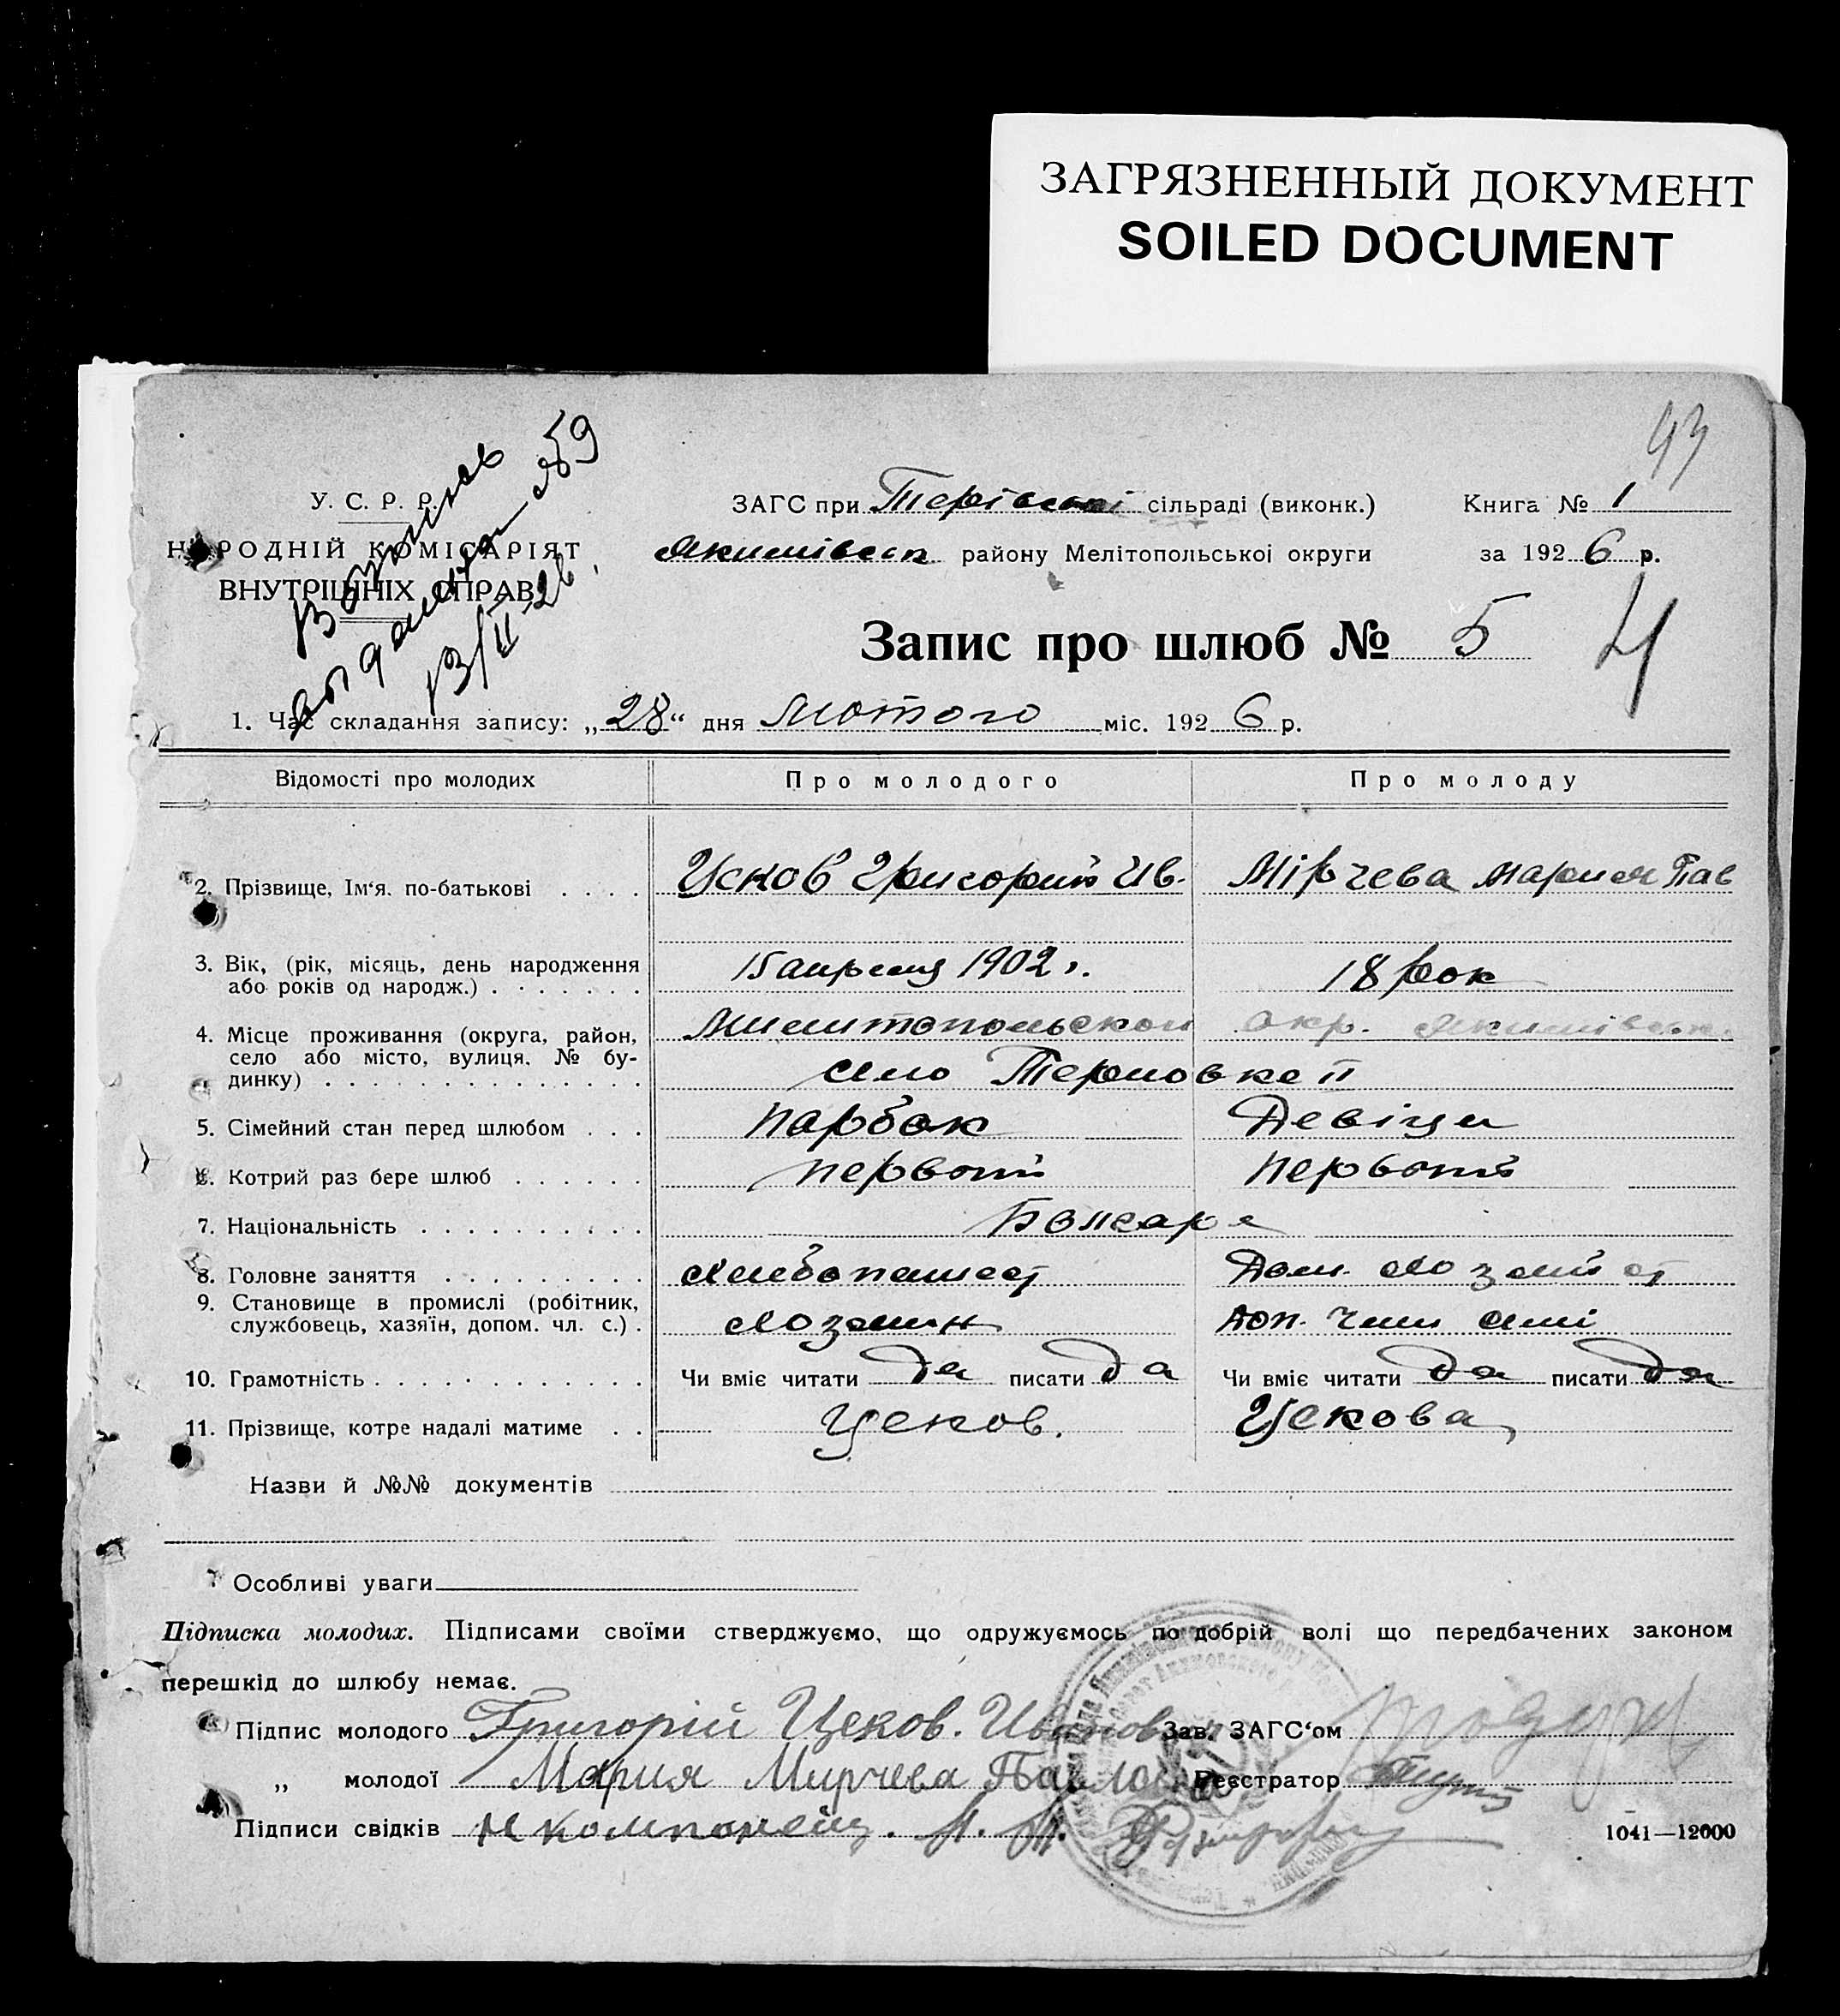 ЗАГРЯЗНЕННЫЙ ДОКУМЕНТ
SOILED DOCUMENT
93
У. С. Р. Р.
НАРОДНІЙ КОМІСАРІЯТ
ВНУТРІШНІХ СПРАВ
№ 59
ЗАГС при Терівські сільраді (виконк.)
Якимівськ району Мелітопольської округи
Книга № 1
за 1926 р.
Запис про шлюб № 5
4
1. Час складання запису: „28“ дня лютого міс. 1926 р.
Відомості про молодих Про молодого Про молоду
2. Прізвище, Ім‘я. по-батькові . . . . Цеков Григорий Ив. Мірчева Мария Пав
3. Вік, (рік, місяць, день народження
або років од народж.) . . . . . . . 15 апреля 1902 г. 18 рок
4. Місце проживання (округа, район, Милитопольской окр. Якимівськ.
село або місто, вулиця, № бу-
динку) . . . . . . . . . . . . . . село Терновке II
5. Сімейний стан перед шлюбом . . . Парбок Девіци
6. Котрий раз бере шлюб . . . . . . первый первый
7. Національність . . . . . . . . . . Болгаре
8. Головне заняття . . . . . . . . . Хлебопашест Дом. хозяйст
9. Становище в промислі (робітник,
службовець, хазяїн, допом. чл. с.) . хозяин доп. член семі
10. Грамотність . . . . . . . . . . . . Чи вміє читати да писати да Чи вміє читати да писати да
11. Прізвище, котре надалі матиме . . Цеков. Цекова
Назви й №№ документів
Особливі уваги
Підписка молодих. Підписами своїми стверджуємо, що одружуємось по добрій волі що передбачених законом
перешкід до шлюбу немає.
Підпис молодого Григорій Цеков. Иванов Зав. ЗАГС‘ом
„ молодої Мария Мирчева Павлов Реєстратор
Підписи свідків
1041—12000